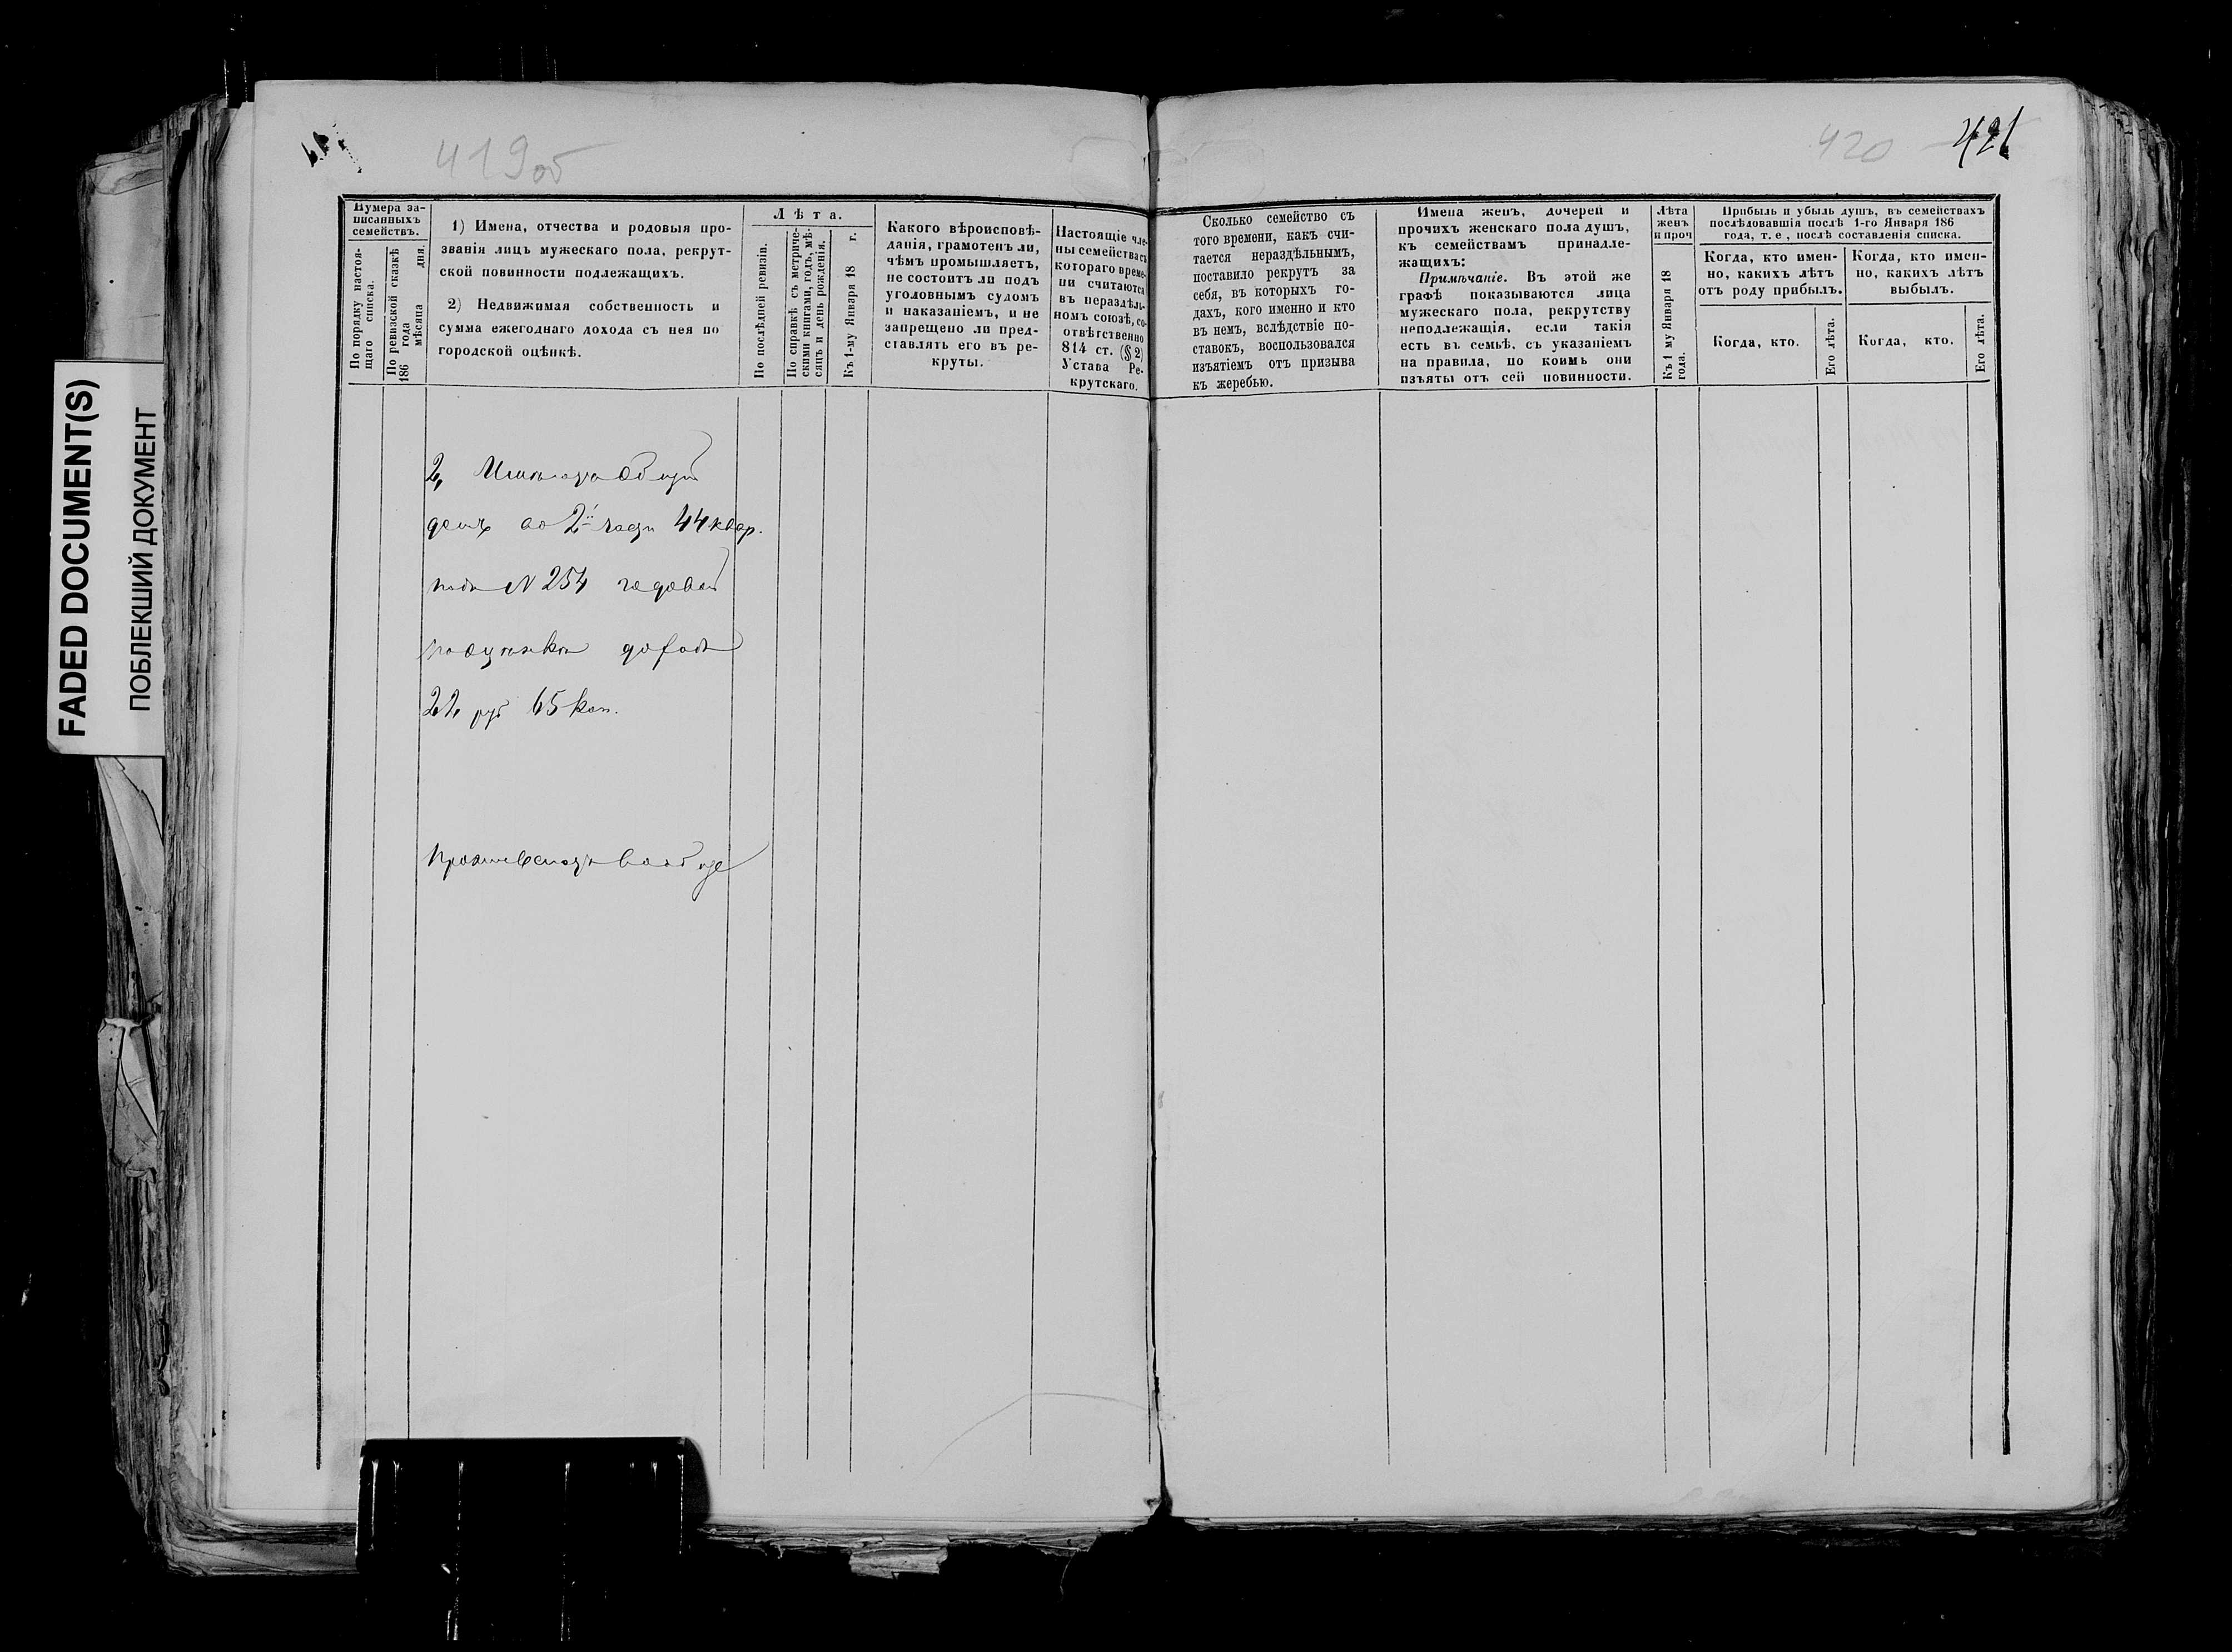 FADED DOCUMENT(S)
ПОБЛЕКШИЙ ДОКУМЕНТ
419об
Нумера за-
писанныхъ
семействъ.
По порядку настоя-
щаго списка.
По ревизской сказкѣ
186 года
мѣсяца дня.
1) Имена, отчества и родовыя про-
званія лицъ мужескаго пола, рекрут-
ской повинности подлежащихъ.
2) Недвижимая собственность и
сумма ежегоднаго дохода съ нея по
городской оцѣнкѣ.
Лѣта.
По послѣдней ревизіи.
По справкѣ съ метриче-
скими книгами, годъ, мѣ-
сяцъ и день рожденія.
Къ 1-му Января 18 г.
Какого вѣроисповѣ-
данія, грамотенъ ли,
чѣмъ промышляетъ,
не состоитъ ли подъ
уголовнымъ судомъ
и наказаніемъ, и не
запрещено ли пред-
ставлять его въ ре-
круты.
Настоящіе чле-
ны семейства съ
котораго време-
ни считаются
въ нераздѣль-
номъ союзѣ, со-
отвѣтственно
814 ст. (§ 2)
Устава Ре-
крутскаго.
2, Имѣютъ общій
домъ во 2й части 44 квар.
подъ N 254 годовой
доходъ
22 руб 65 коп.
Проживаютъ вообще
420
421
Сколько семейство съ
того времени, какъ счи-
тается нераздѣльнымъ,
поставило рекрутъ за
себя, въ которыхъ го-
дахъ, кого именно и кто
въ немъ, вслѣдствіе по-
ставокъ, воспользовался
изъятіемъ отъ призыва
къ жеребью.
Имена женъ, дочерей и
прочихъ женскаго пола душъ,
къ семействамъ принадле-
жащихъ:
Примѣчаніе. Въ этой же
графѣ показываются лица
мужескаго пола, рекрутству
неподлежащія, если такія
есть въ семьѣ, съ указаніемъ
на правила, по коимъ они
изъяты отъ сей повинности.
Лѣта
женъ
и проч
Къ 1 му Января 18
года.
Прибыль и убыль душъ, въ семействахъ
послѣдовавшія послѣ 1-го Января 186
года, т. е, послѣ составленія списка.
Когда, кто имен-
но, какихъ лѣтъ
отъ роду прибылъ.
Когда, кто имен-
но, какихъ лѣтъ
выбылъ.
Когда, кто.
Его лѣта.
Когда, кто.
Его лѣта.